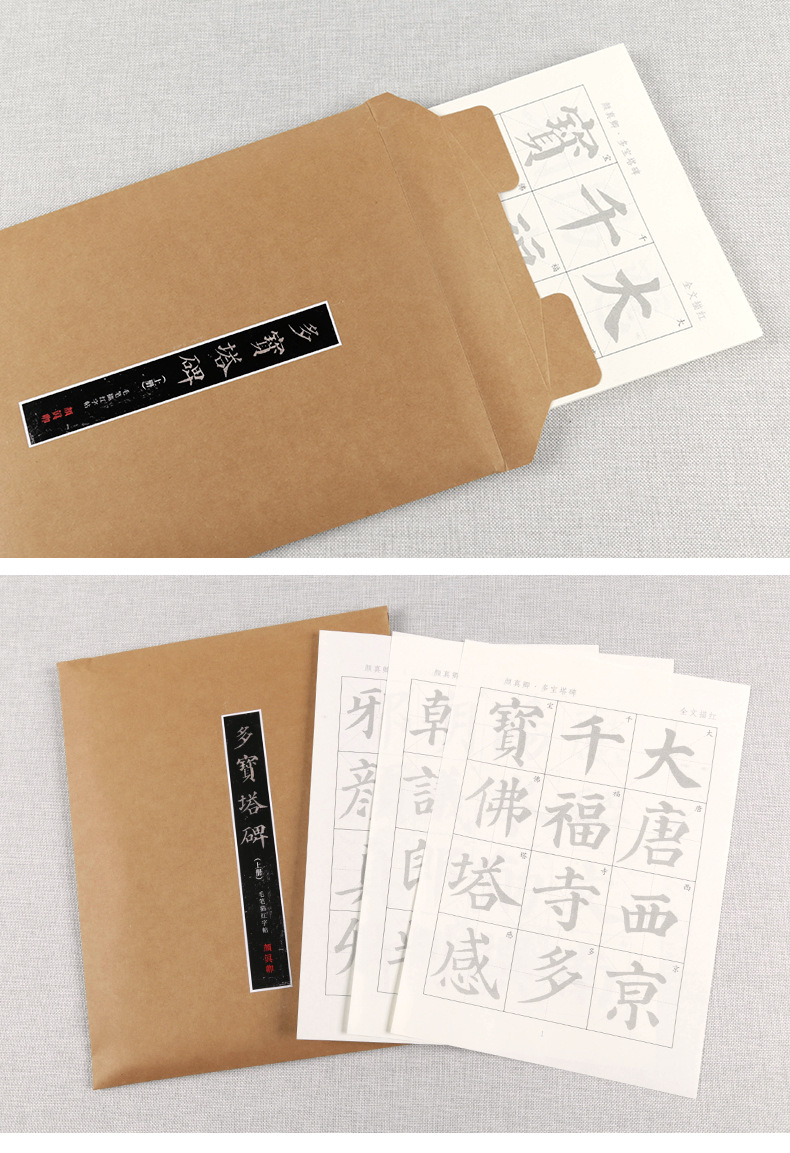 多寶塔碑
(上册)
毛笔描红字帖
顔真卿
颜真卿·多宝塔碑
全文描红
大
千
寶
大
千
宝
福
佛
多寶塔碑
(上册)
毛笔描红字帖
顔真卿
颜真卿·多宝塔碑
全文描红
大唐西京
大唐西京
千福寺多
千福寺多
寶佛塔感
宝佛塔感
1
颜真卿
颜真卿